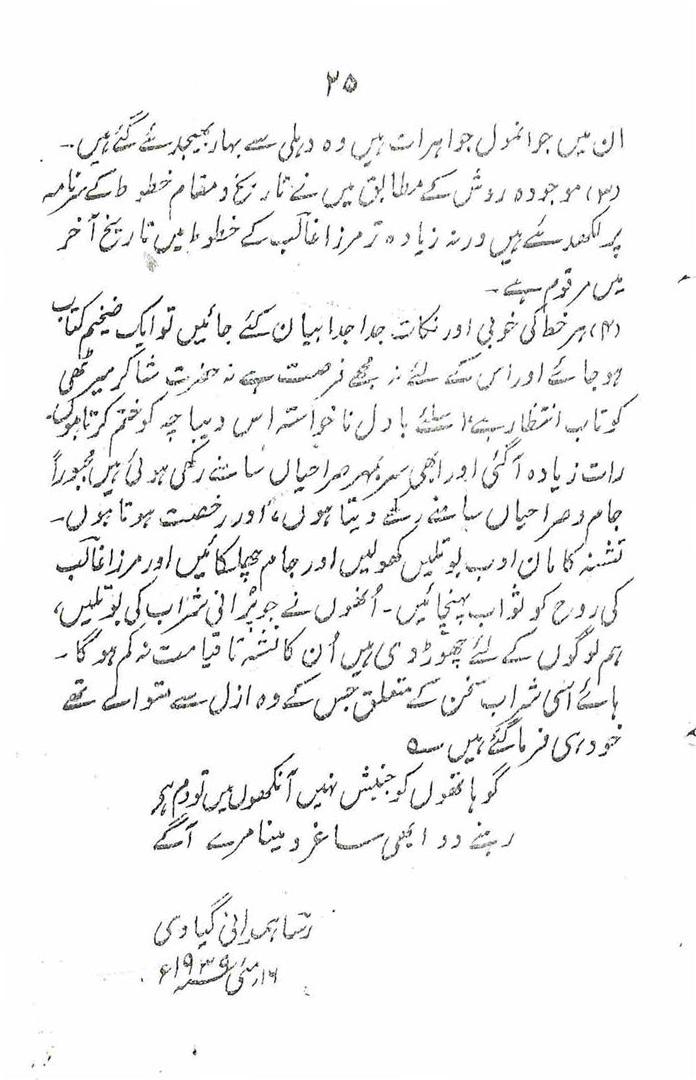 ۲۵
ان میں جو انمول جواہرات ہیں وہ دہلی سے بہار بھیجدئے گئے ہیں۔
(۳) موجودہ روش کے مطابق میں نے تاریخ و مقام خطوط کے سرنامہ
پر لکھدئے ہیں ورنہ زیادہ تر مرزا غالب کے خطوط میں تاریخ آخر
میں مرقوم ہے۔
(۴) ہر خط کی خوبی اور نکات جدا جدا بیان کئے جائیں تو ایک ضخیم کتاب
ہو جائے اور اس کے لئے نہ مجھے فرصت ہے نہ حضرت شاکر میرٹھی
کو تاب انتظار ہے اسلئے بادل ناخواستہ اس دیباچہ کو ختم کرتا ہوں۔
رات زیادہ آگئی اور ابھی سر بمہر صراحیاں سامنے رکھی ہوئی ہیں مجبوراً
جام و صراحیاں سامنے رکھے دیتا ہوں، اور رخصت ہوتا ہوں۔
تشنہ کامان ادب بوتلیں کھولیں اور جام چھلکائیں اور مرزا غالب
کی روح کو ثواب پہنچائیں۔ اُنھوں نے جو پُرانی شراب کی بوتلیں،
ہم لوگوں کے لئے چھوڑ دی ہیں اُن کا نشہ تا قیامت نہ کم ہو گا۔
ہائے اسی شراب سخن کے متعلق جس کے وہ ازل سے متوالے تھے
خود ہی فرما گئے ہیں ؎
گو ہاتھوں کو جنبش نہیں آنکھوں میں تو دم ہے
رہنے دو ابھی ساغر و مینا مرے آگے
رسا ہمدانی گیاوی
۱۶ مئی ۱۹۳۹ء